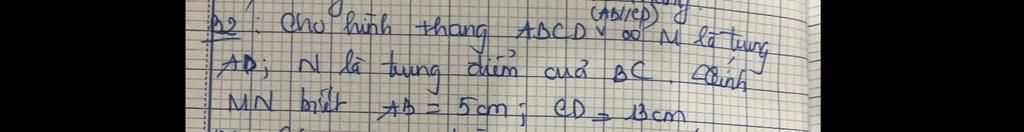 (AB//CD)
B2: Cho hình thang ABCD có M là trung
AD; N là trung điểm của BC. Tính
MN biết AB = 5cm; CD = 13cm